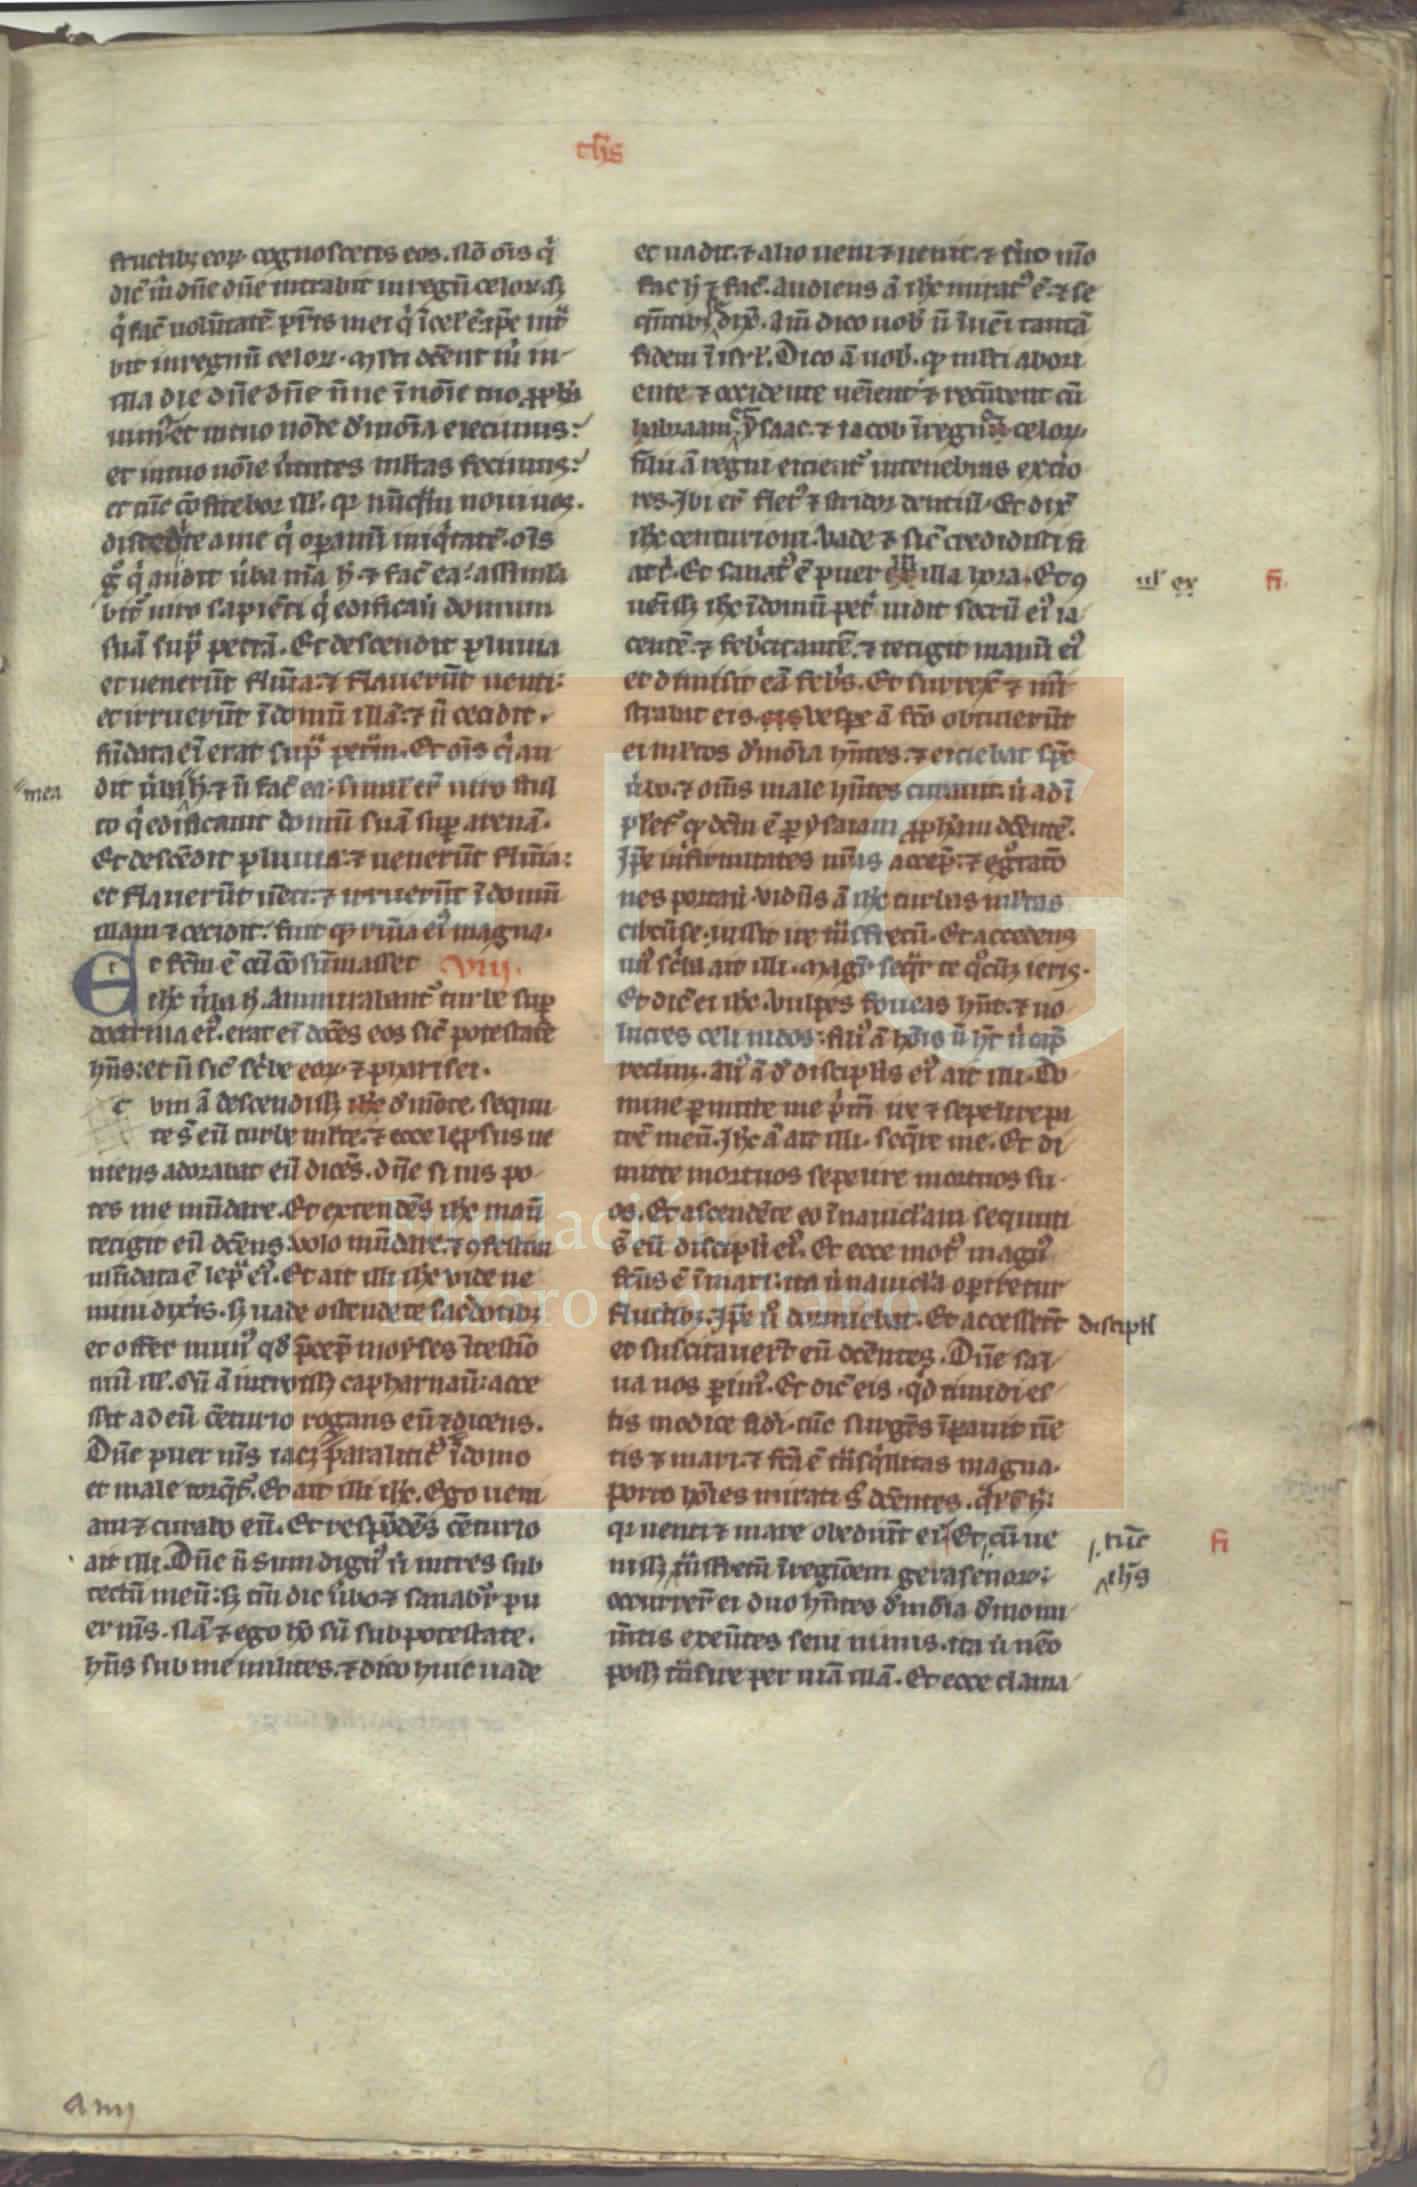 thꝰ
fructibꝫ eoꝝ cognoscetis eos. Nō oīs q̇
dic̄ m̄ dn̄e dn̄e intrabit in regn̄ celoꝝ. sꝫ
q̇ fac̄ uolūtatē pr̄is mei q̇ ī cel̄ ē. ip̄e int̄
bit in regnū celoꝝ. Mlti dicēnt m̄ in
illa die dn̄e dn̄e n̄ne ī noīe tuo ꝓph̄
uimꝰ. et in tuo noīe demōīa eiecimus:
et in tuo noīe ūtutes multas fecimus:
et tūc cōfitebor ill̄. qꝛ nūquā noui uos.
discedite a me q̇ oꝑamī iniq̇tatē. Oīs
gͦ q̇ audit ūba mīa h̄. ⁊ fac̄ ea: assimila
bit̄ uiro sapiēti q̇ edificauit domum
suā supͣ petrā. Et descendit pluuia
et uenerūt flūīa. ⁊ flauerūt uenti:
et irruerūt ī domū illā. ⁊ n̄ cecidit.
fūdata eī erat supͣ petͣm. Et oīs q̇ au
dit ūba h̄. ⁊ n̄ fac̄ ea. simil̄ er̄ uiro stul
to q̇ edificauit domū suā supꝑ arenā.
Et descēdit pluuia. ⁊ uenerūt flūīa:
et flauerūt uēti. ⁊ irruerūt ī domū
illam ⁊ cecidit. fuit qꝫ ruīa eiꝰ magna.
Et fc̄m ē cū cōsūmasset VIII.
ih̄c ūba h̄. Ammirabant̄ turbe supꝑ
doctrina eiꝰ. erat eī docēs eos sic̄ potestatē
hn̄s: et n̄ sic̄ sc̄ibe eoꝝ. ⁊ pharisei.
c Vm ā descendissꝫ ih̄c de mōte. secute
te s̄ eū turbe multe. ⁊ ecce leprosus ue
niens adorabat eū dicēs. dn̄e si uis po
tes me mūdare. Et extendēs ih̄c manū
tetigit eū dicēs. volo mūdare. ⁊ ꝯfestim
mūdata ē lepͣ eiꝰ. Et ait illi ih̄c vide ne
mini dix̄is. sꝫ uade ostende te sac̄dotibꝫ
et offer munꝰ qd̄ p̄cep̄ moyses ī testīo
niū ill̄. Cū ā introissꝫ capharnaū: acce
ssit ad eū cēturio rogans eū ⁊ dicens.
Dn̄e puer mīs iacꝫ paralitic̄ ī domo
et male torq̄t̄. Et ait illi ih̄c. Ego ueni
am ⁊ curabo eū. Et respōdēs cēturio
ait illi. Dn̄e n̄ sum dignꝰ ut intres sub
tectū meū: sꝫ tm̄ dic ūbo ⁊ sanabit̄ pu
er mīs. Nā ⁊ ego hō sū sub potestate.
hn̄s sub me milites. ⁊ dico huic uade
et uadit. ⁊ alio ueni ⁊ uenit. ⁊ s̄uo m̄o
fac h̄ ⁊ fac̄. Audiens ā ih̄c mirat̄ ē. ⁊ se
quētibꝫ dix̄. Am̄ dico uob̄ n̄ inuēi tantā
fidem ī isrl̄. Dico ā uob̄. qꝫ multi ab ori
ente ⁊ occidente uēient ⁊ recūbent cū
habraam ysaac. ⁊ iacob ī regno celoꝝ.
filii ā regni eicient̄ in tenebras exterio
res. Ibi er̄ fletꝰ ⁊ stridor dentiū. Et dix̄
ih̄c centurioni. Vade ⁊ sic̄ credidisti fi
at t̄. Et sanatꝰ ē puer ex illa hora. Et ꝯ
uēissꝫ ih̄c ī domū pet̄ uidit socrū eiꝰ ia
centē. ⁊ feb̄citantē. ⁊ tetigit manū eiꝰ
et dimisit eā feb̄s. Et surrex̄ ⁊ mīi
strabat eis. Vespe ā fc̄o obtulerūt
ei multos demōīa hn̄tes. ⁊ eiciebat spc̄
ūbo. ⁊ omīs male hn̄tes curauit. ut adī
plet̄ qd̄ dc̄m ē per ysaiam ꝓph̄am dicētē.
Ip̄e infirmitates nr̄as accep̄. ⁊ eḡtatiō
nes portauit. Vidēs ā ih̄c turbas multas
circū se. iussit ire trās fretū. Et accedens
unꝰ sc̄ba ait illi. Magr̄ seqr̄ te q̊cūqꝫ ieris.
Et dic̄ ei ih̄c. Vulpes foueas hn̄t. ⁊ uo
lucres celi nidos: filiꝰ ā hōīs n̄ hꝫ ubi cap̄
reclinꝫ. Aliꝰ ā de discipulis eiꝰ ait illi. Do
mine permitte me p̄m ire ⁊ sepelire pa
trē meū. Ih̄c ā ait illi. seqr̄e me. Et di
mitte mortuos sepelire mortuos su
os. Et ascendēte eo ī nauiculam secuti
s̄ eū discipl̄i eiꝰ. Et ecce motꝰ magnꝰ
fc̄us ē ī mari. ita ut nauicl̄a operiretur
fluctibꝫ. Ip̄e ū dormiebat. Et accesserūt
et suscitauerūt eū dicētes. Dn̄e sal
ua nos perimꝰ. Et dic̄ eis. qd̄ timidi es
tis modice fidi. tūc surgēs īpauit uē
tis ⁊ mari. ⁊ fc̄a ē trāsq̇llitas magna.
porro hōīes mirati s̄ dicētes. q̄lis ē h̄:
qꝛ uenti ⁊ mare obediūt ei. Et cū ue
nissꝫ trās fretū ī regiōem gerasenoꝝ:
occurrer̄t ei duo hn̄tes demōīa de monu
mētis exeūtes seui nimis. ita ut nēo
possꝫ trāsire per uiā illā. Et ecce clama
mea
ul̄ ex
fi.
discipl̄i
tūc
ih̄s
fi
a iiij
Fundación
Lázaro Galdiano